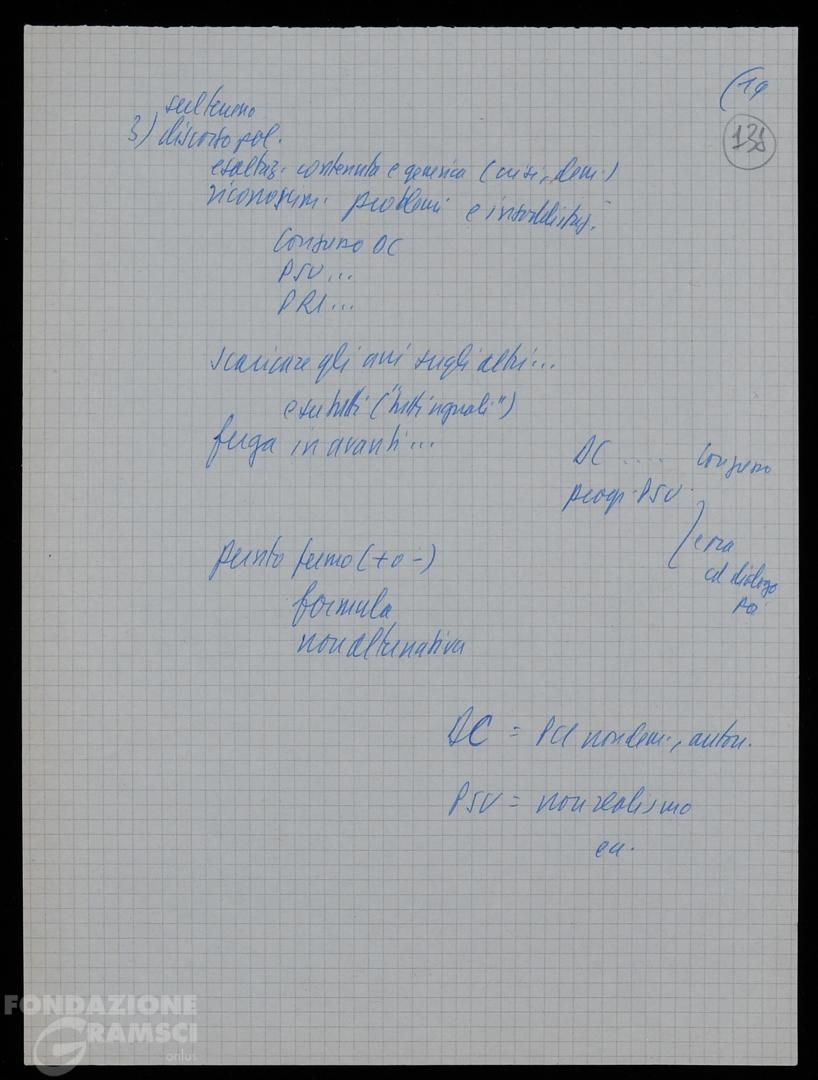 (19
138
sul terreno
3) discorso pol.
esaltaz. contenuta e generica (crisi, dem.)
riconoscim. problemi e insoddisfaz.
Congresso DC
PSU...
PRI...
scaricare gli uni sugli altri...
e su tutti ("tutti uguali")
fuga in avanti...
DC .... Congresso
progr. PSU
e ora
dialogo
punto fermo (+ o -)
formula
non alternativa
DC = PCI non dem., auton.
PSU = non realismo
FONDAZIONE
GRAMSCI
onlus